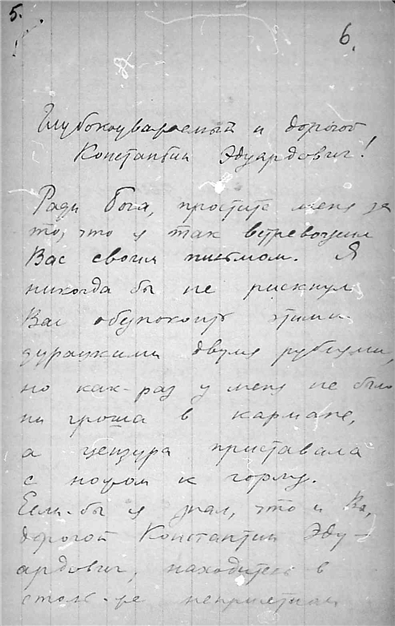 5.
6.
Глубокоуважаемый и дорогой
Константин Эдуардович!
Ради бога, простите меня за
то, что я так встревожил
Вас своим письмом. Я
никогда бы не рискнул
Вас обеспокоить этими
дурацкими двумя рублями,
но как-раз у меня не было
ни гроша в кармане,
а цензура приставала
с ножом к горлу.
Если-бы я знал, что и Вы,
дорогой Константин Эду-
ардович, находитесь в
столь-же неприятном